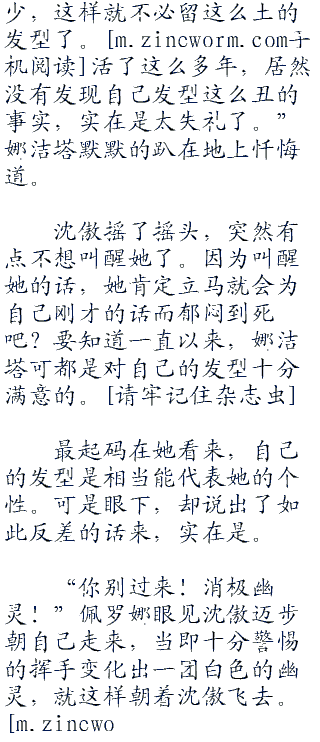 少，这样就不必留这么土的
发型了。[m.zincworm.com手
机阅读]活了这么多年，居然
没有发现自己发型这么丑的
事实，实在是太失礼了。”
娜洁塔默默的趴在地上忏悔
道。
沈傲摇了摇头，突然有
点不想叫醒她了。因为叫醒
她的话，她肯定立马就会为
自己刚才的话而郁闷到死
吧？要知道一直以来，娜洁
塔可都是对自己的发型十分
满意的。[请牢记住杂志虫]
最起码在她看来，自己
的发型是相当能代表她的个
性。可是眼下，却说出了如
此反差的话来，实在是。
“你别过来！消极幽
灵！”佩罗娜眼见沈傲迈步
朝自己走来，当即十分警惕
的挥手变化出一团白色的幽
灵，就这样朝着沈傲飞去。
[m.zincwo